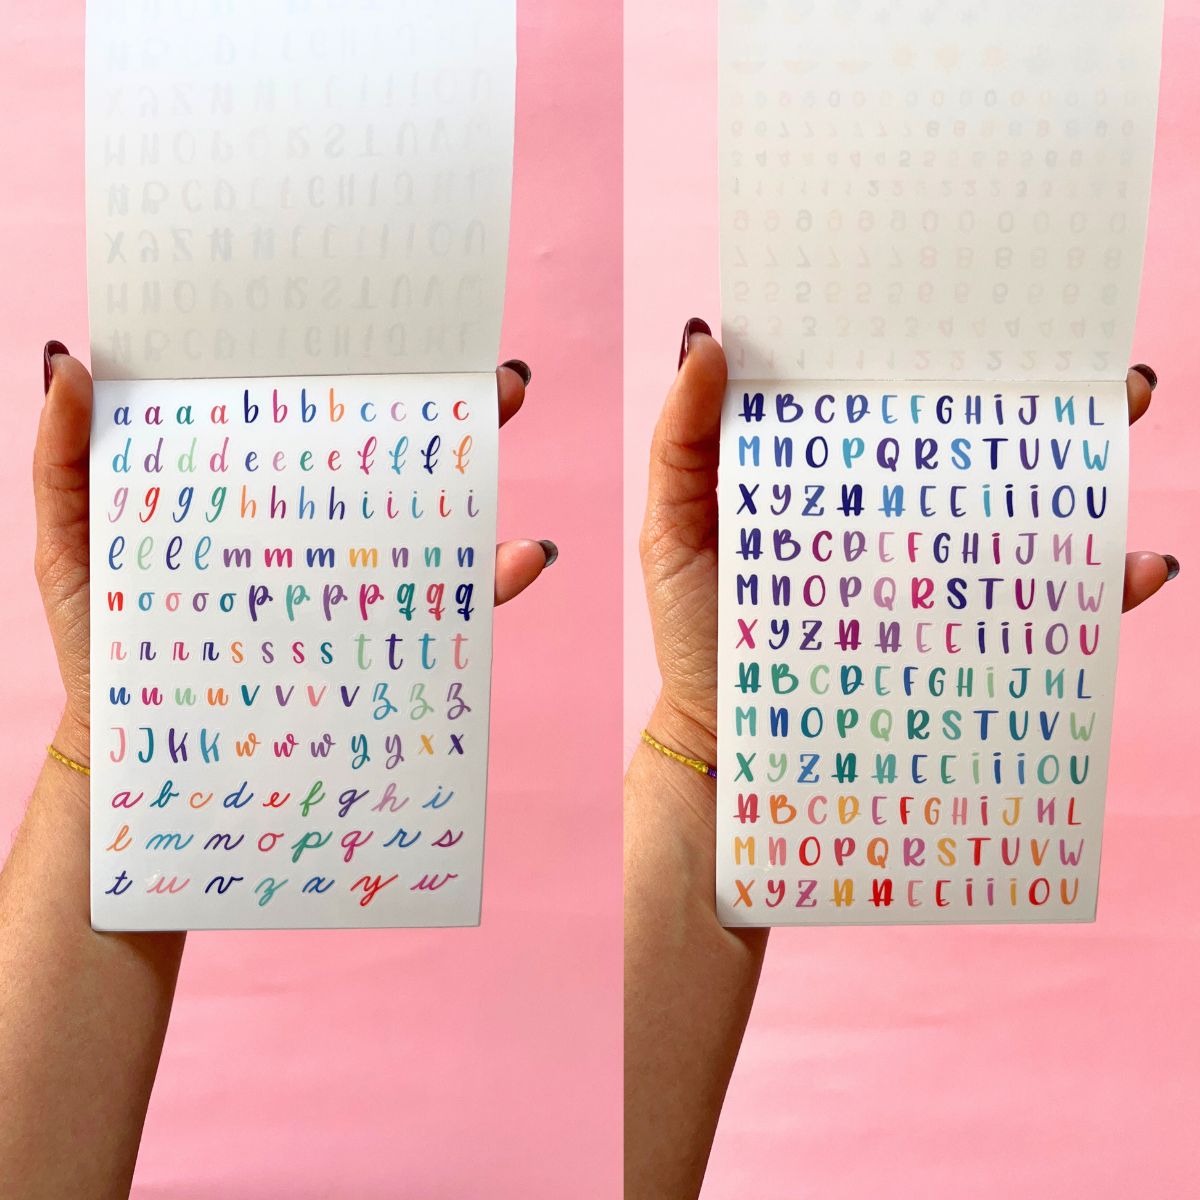 a a a a b b b b c c c c
d d d d e e e e f f f f
g g g g h h h h i i i i i
l l l l m m m m n n n
n o o o o p p p p q q q
r r r r s s s s t t t t
u u u u v v v v z z z
J J K K w w w y y x x
a b c d e f g h i
l m n o p q r s
t u v z x y w
A B C D E F G H i J K L
M N O P Q R S T U V W
X Y Z A A E E i i i O U
A B C D E F G H i J K L
M N O P Q R S T U V W
X Y Z A A E E i i i O U
A B C D E F G H i J K L
M N O P Q R S T U V W
X Y Z A A E E i i i O U
A B C D E F G H i J K L
M N O P Q R S T U V W
X Y Z A A E E i i i O U